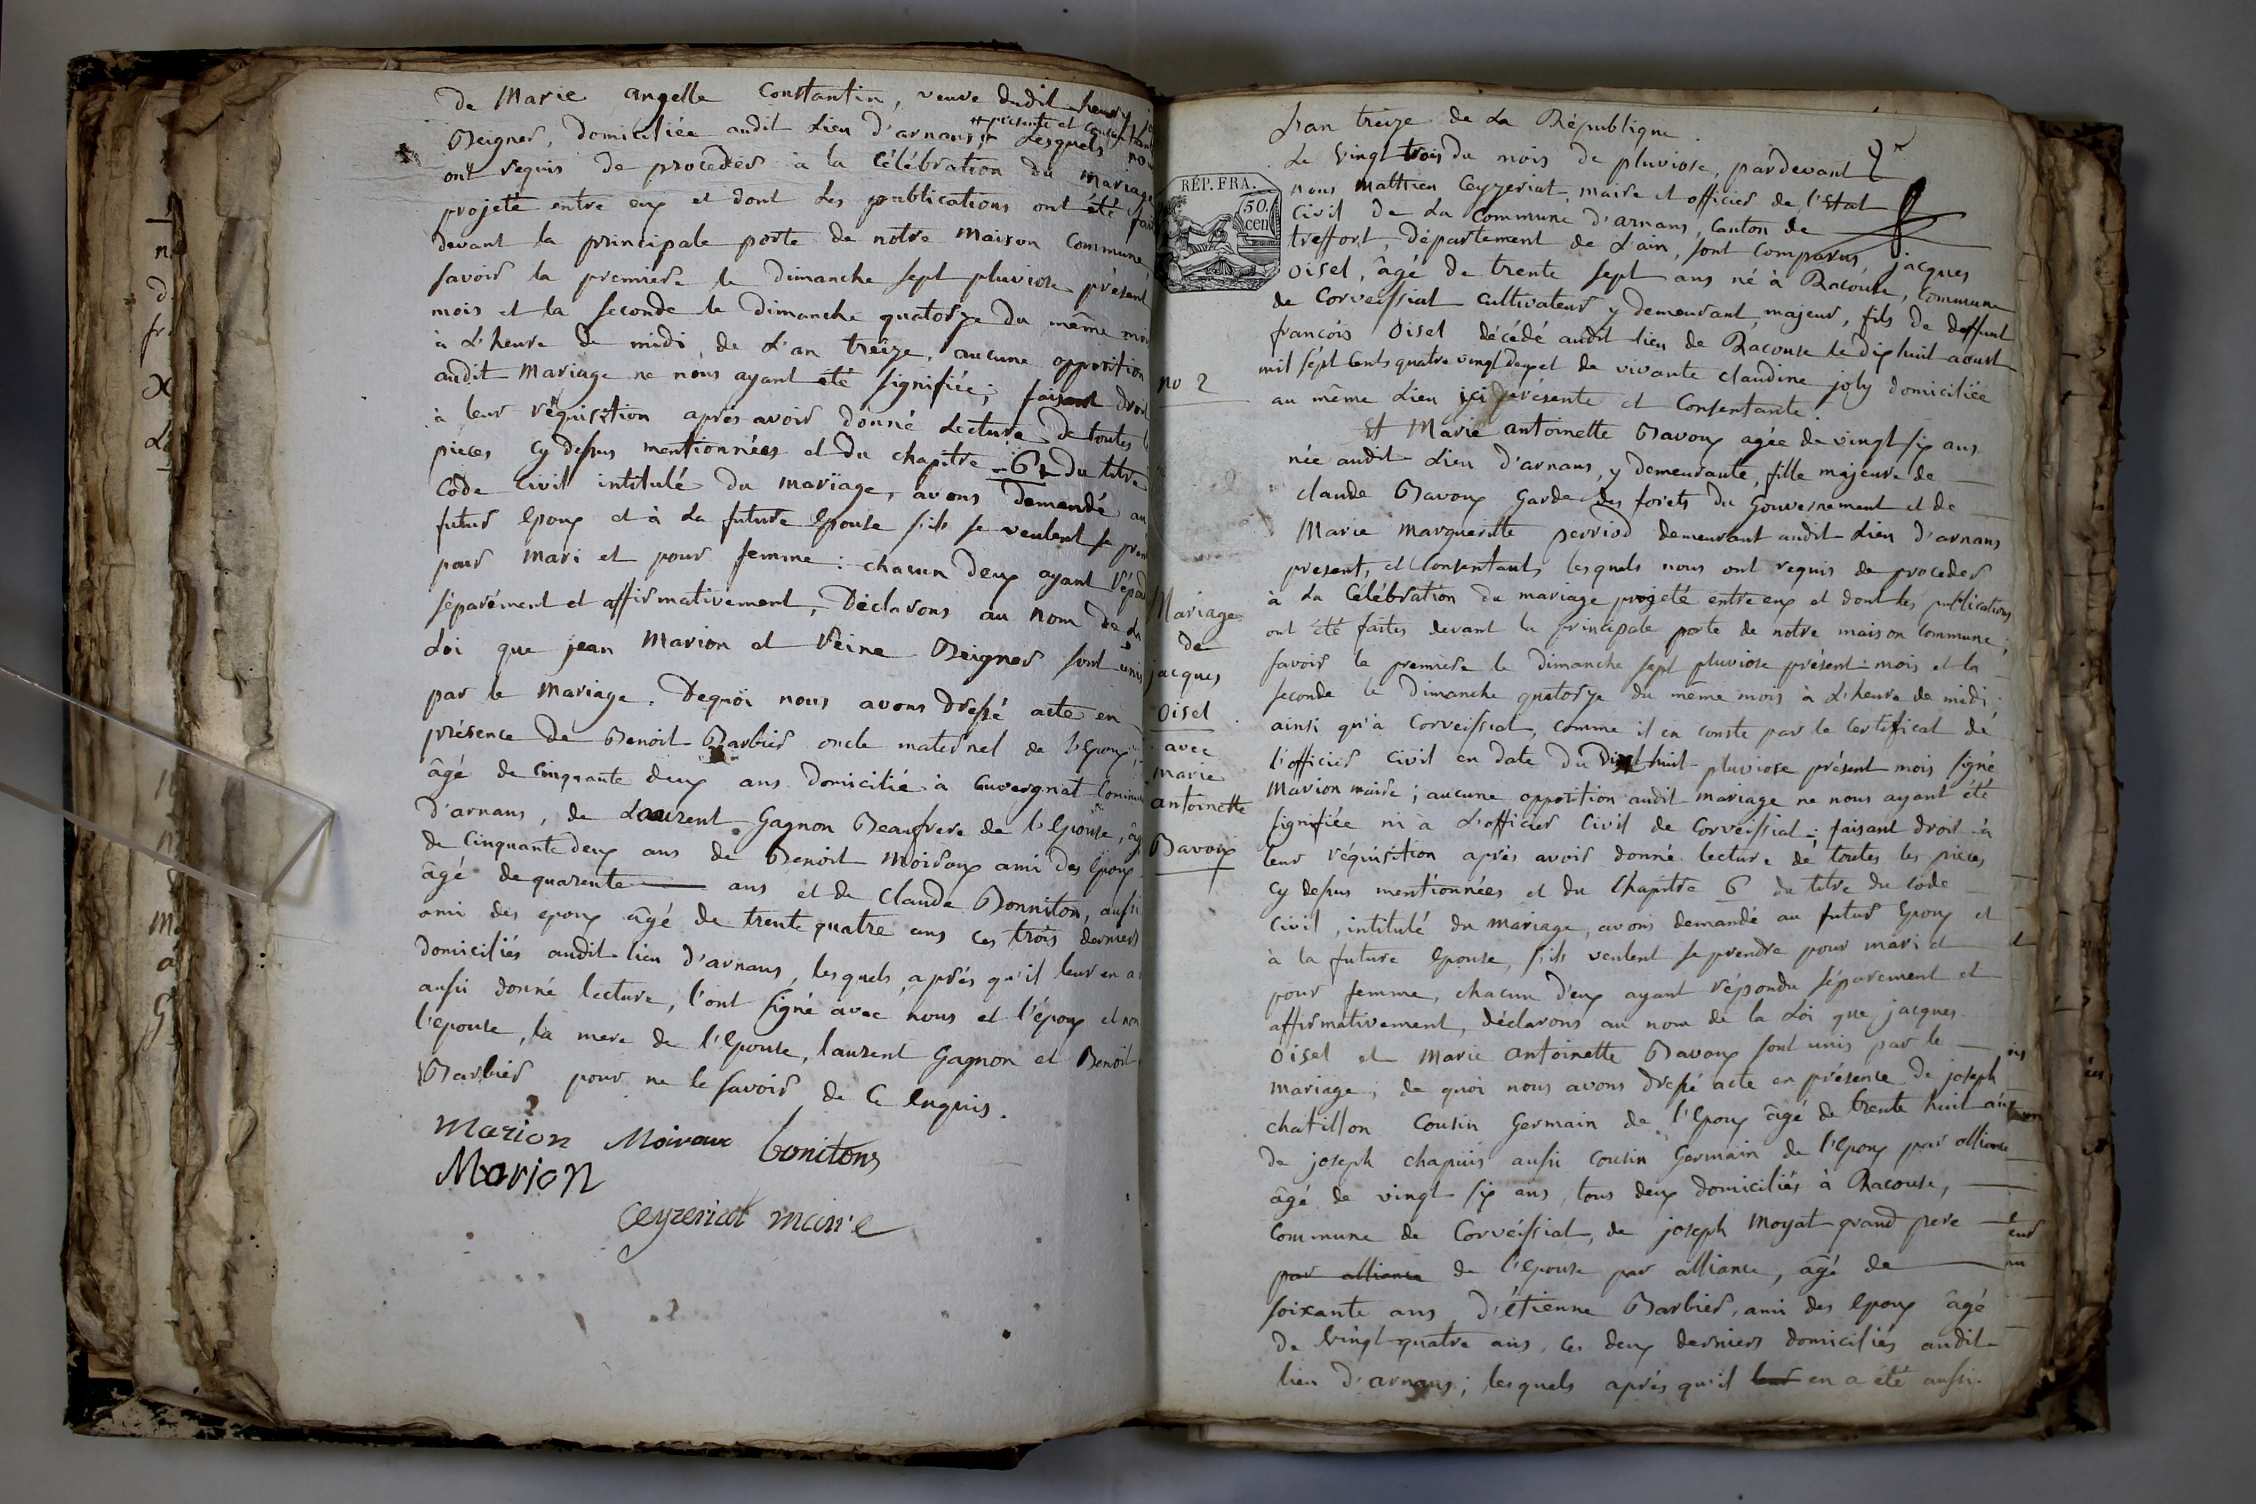 de Marie angelle Constantin, veuve dudit henry
Beigner, domiciliée audit Lieu d'arnans ++ Lesquels nous
++ présente et consentante
ont requis de procéder à la Célébration du mariage
projeté entre eux et dont les publications ont été
devant la principale porte de notre Maison Commune,
savoir la premiere le Dimanche sept pluviose présent
mois et la seconde le Dimanche quatorze du même mois
à L'heure de midi, de L'an treize, aucune opposition
audit Mariage ne nous ayant été signifiée; faisant droit
à leur réquisition après avoir donné Lecture de toutes
pieces cy dessus mentionnées et du chapitre 6 du titre
Code Civil intitulé du mariage, avons demandé au
futur Epoux et à La future Epouse s'ils se veulent se
pour mari et pour femme: chacun d'eux ayant
séparément et affirmativement, Déclarons au nom de La
Loi que jean Marion et Reine Beigner sont unis
par le Mariage. De quoi nous avons dressé acte en
présence de Benoit Barbier oncle maternel de l'Epoux,
âgé de Cinquante deux ans domicilié à Cuvergnat
d'arnans, de Laurent Gagnon Beaufrere de l'Epouse,
de Cinquante deux ans de Benoit Moiroux ami des Epoux
âgé de quarente ans et de Claude Bonniton, aussi
ami des epoux âgé de trente quatre ans ces trois derniers
domiciliés audit lieu d'arnans, lesquels, après qu'il leur en a
aussi donné lecture, l'ont signé avec nous et l'époux et non
l'epouse, la mere de l'Epouse, laurent Gagnon et Benoit
Barbier pour ne le savoir de Ce Enquis.
Marion Moiroux bonitons
Marion
Ceyzeriat maire
L'an treize de La République
Le Vingt trois du mois de pluviose, pardevant
nous Mathieu Ceyzeriat, maire et officier de l'Etat
Civil de La Commune d'arnans, Canton de
treffort, département de L'ain, sont comparus, jacques
RÉP. FRA.
50.
cen
oisel, âgé de trente sept ans né à Racouse, Commune
de Corveissiat cultivateur y demeurant, majeur, fils de deffunt
françois Oisel décédé audit lieu de Racouse le dix huit aoust
mil sept Cents quatre vingt et de vivante claudine joly domiciliée
au même Lieu ici présente et Consentante.
no 2
Et Marie antoinette Bavoux agée de vingt six ans
née audit Lieu d'arnans, y demeurante, fille majeure de
claude Bavoux Garde des forets du Gouvernement et de
Marie Marguerite perriod demeurant audit Lieu d'arnans
présent, et Consentant, lesquels nous ont requis de proceder
à La Célébration du mariage projeté entre eux et dont les publications
ont été faites devant la principale porte de notre maison Commune;
savoir la premiere le Dimanche sept pluviose présent mois et la
seconde le Dimanche quatorze du même mois à L'heure de midi;
ainsi qu'à Corveissiat, comme il en conste par le Certificat de
l'officier Civil en date du Dix huit pluviose présent mois signé
Marion maire; aucune opposition audit mariage ne nous ayant été
signifiée ni à L'officier Civil de Corveissiat; faisant droit à
leur réquisition après avoir donné lecture de toutes les pièces
cy dessus mentionnées et du Chapitre 6 du titre du Code
Civil, intitulé du mariage, avons demandé au futur Epoux et
à la future Epouse, s'ils veulent se prendre pour mari et
pour femme, chacun d'eux ayant répondu séparement et
affirmativement, déclarons au nom de la Loi que jacques
Oisel et Marie Antoinette Bavoux sont unis par le
mariage; de quoi nous avons dressé acte en présence de joseph
chatillon Cousin Germain de l'Epoux âgé de trente huit ans
de joseph chapuis aussi cousin Germain de l'Epoux par alliance
âgé de vingt six ans, tous deux domiciliés à Racouse,
Commune de Corveissiat, de joseph Moyat grand pere
par alliance de l'Epouse par alliance, âgé de
soixante ans d'étienne Barbier, ami des Epoux âgé
de Vingt quatre ans, ces deux derniers domiciliés audit
lieu d'arnans; lesquels après qu'il leur en a été aussi
Mariage
de
jacques
Oisel
avec
marie
antoinette
Bavoux